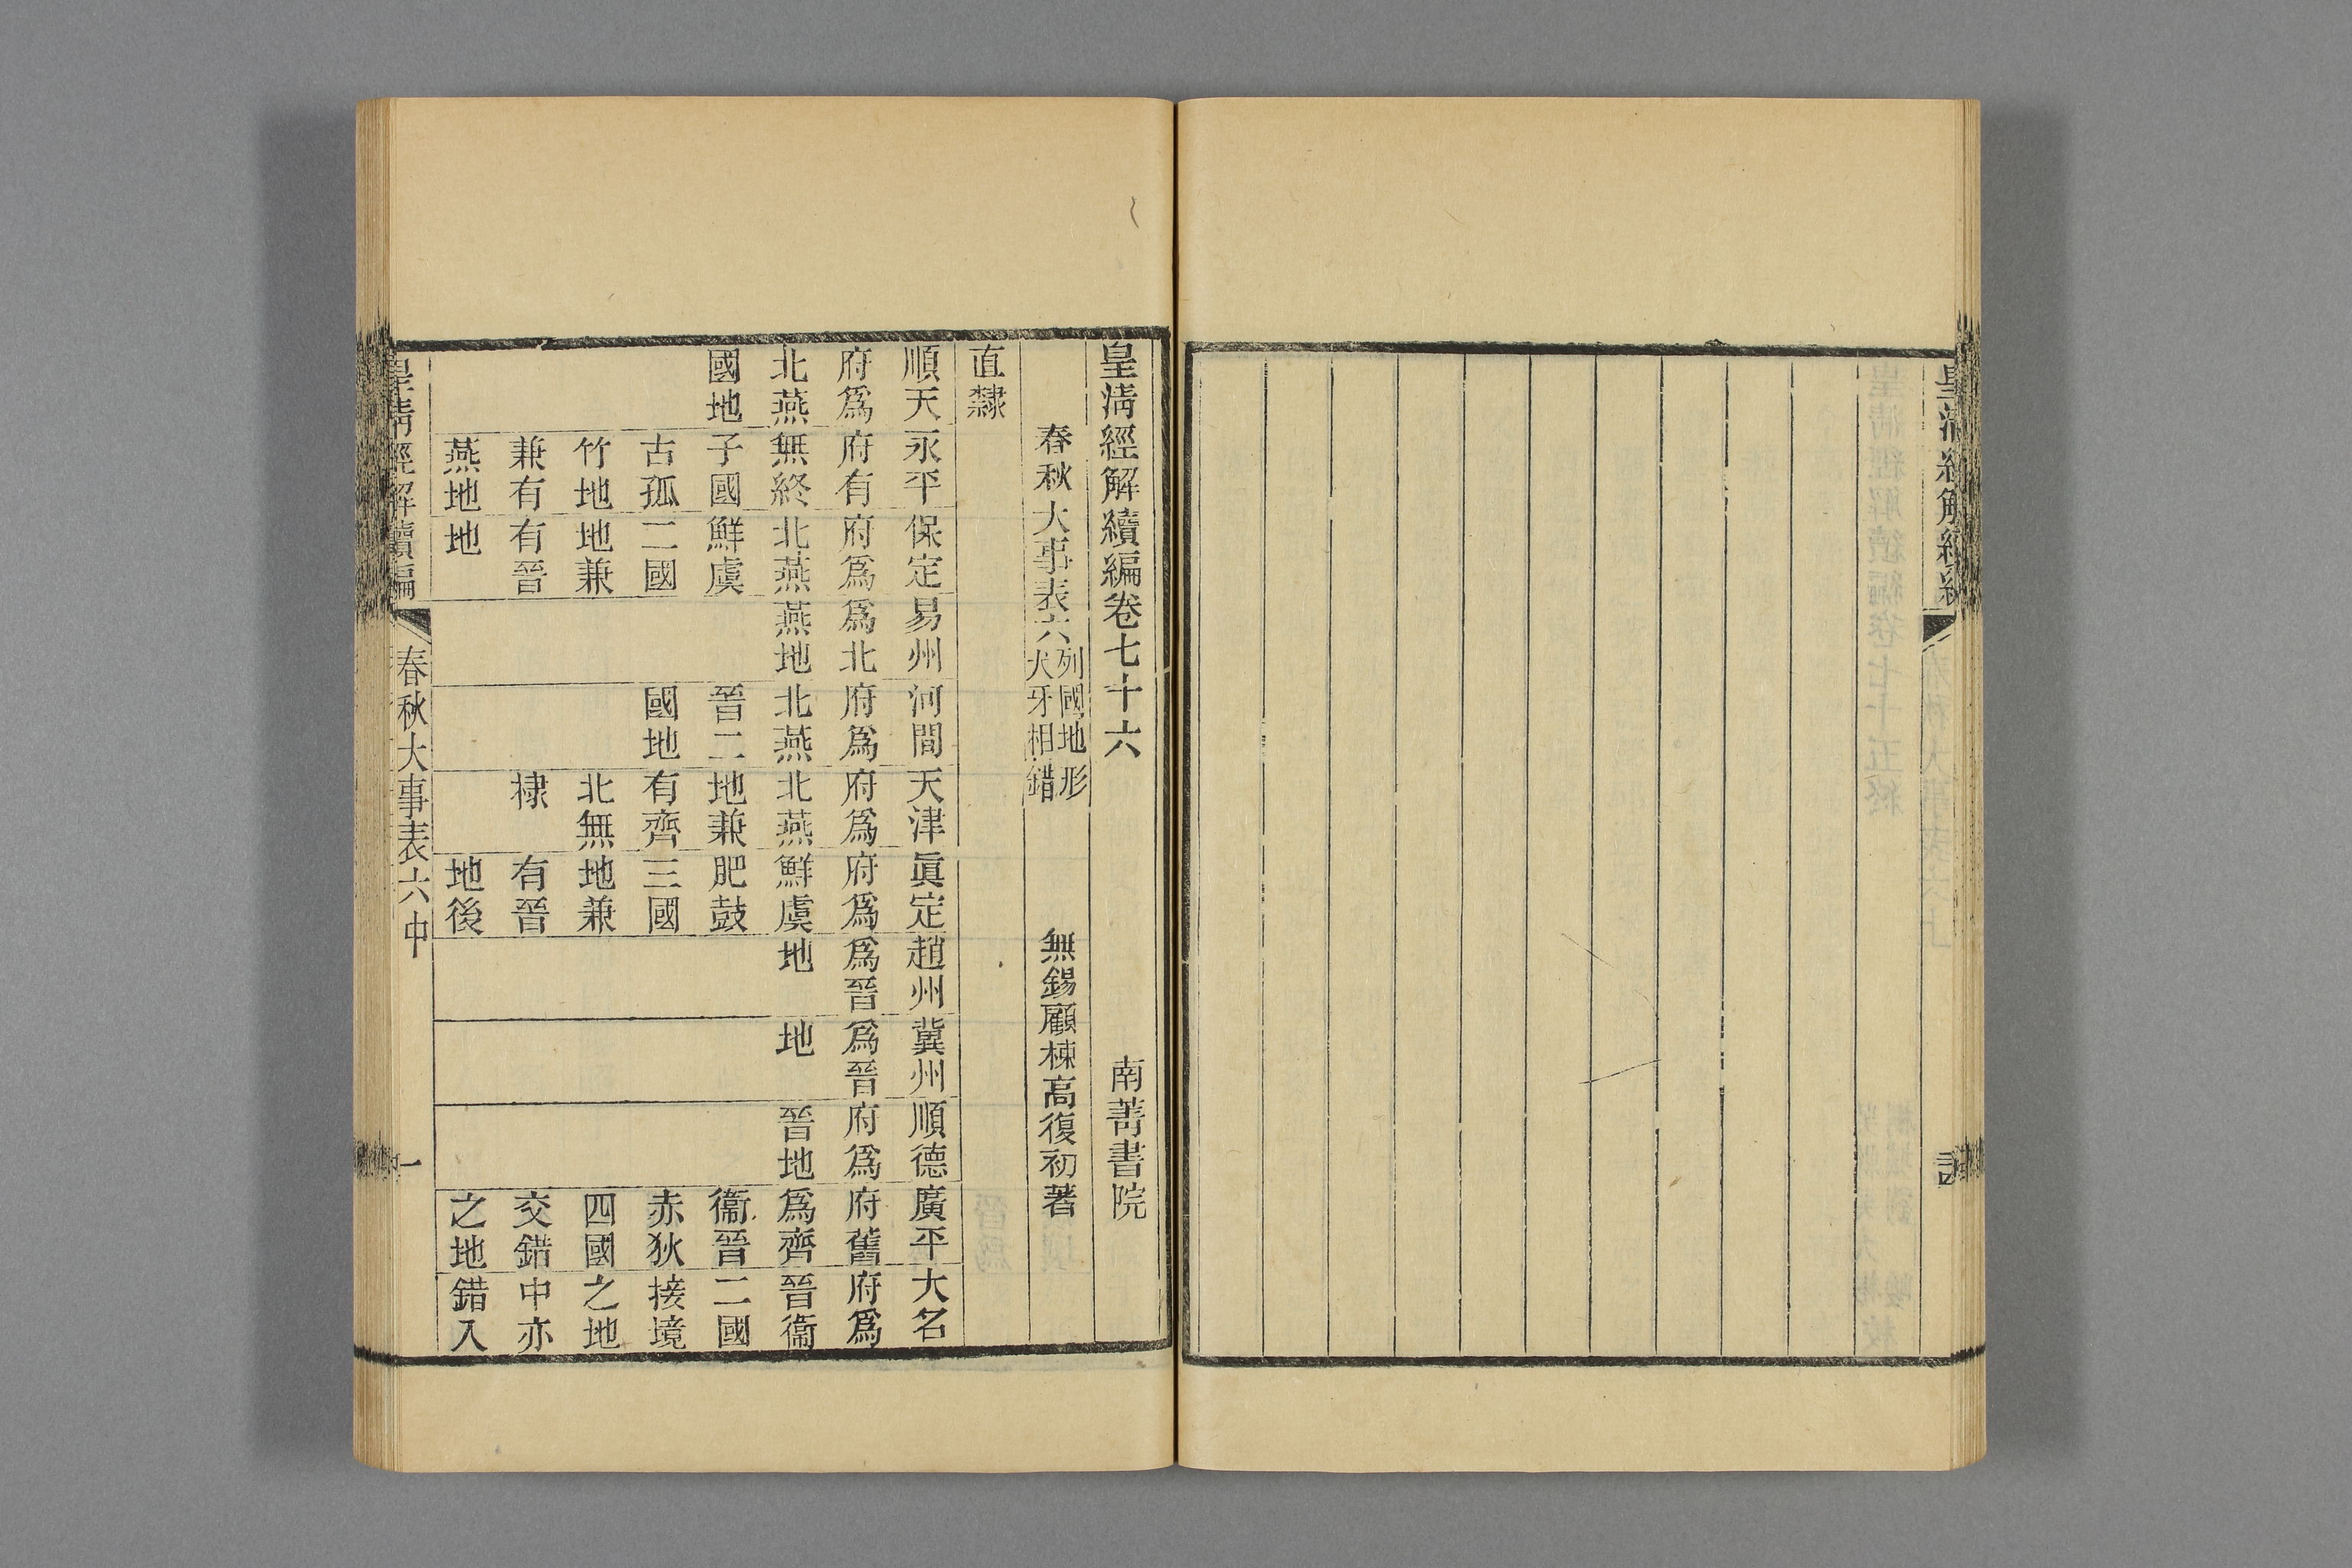 皇淸經解續編卷七十六
南菁書院
春秋大事表六
列國地形
犬牙相錯
無錫顧棟高復初著
直隸
順天府爲北燕國地
永平府有無終子國古孤竹地兼有燕地
保定府爲北燕鮮虞二國地兼有晉地
易州爲北燕地
河間府爲北燕晉二國地
天津府爲北燕地兼有齊北無棣
眞定府爲鮮虞肥鼓三國地兼有晉地後
趙州爲晉地
冀州爲晉地
順德府爲晉地
廣平府舊爲齊衞晉赤狄四國交錯之地
大名府爲晉衞二國接境之地中亦錯入
皇淸經解續編
春秋大事表六中
一